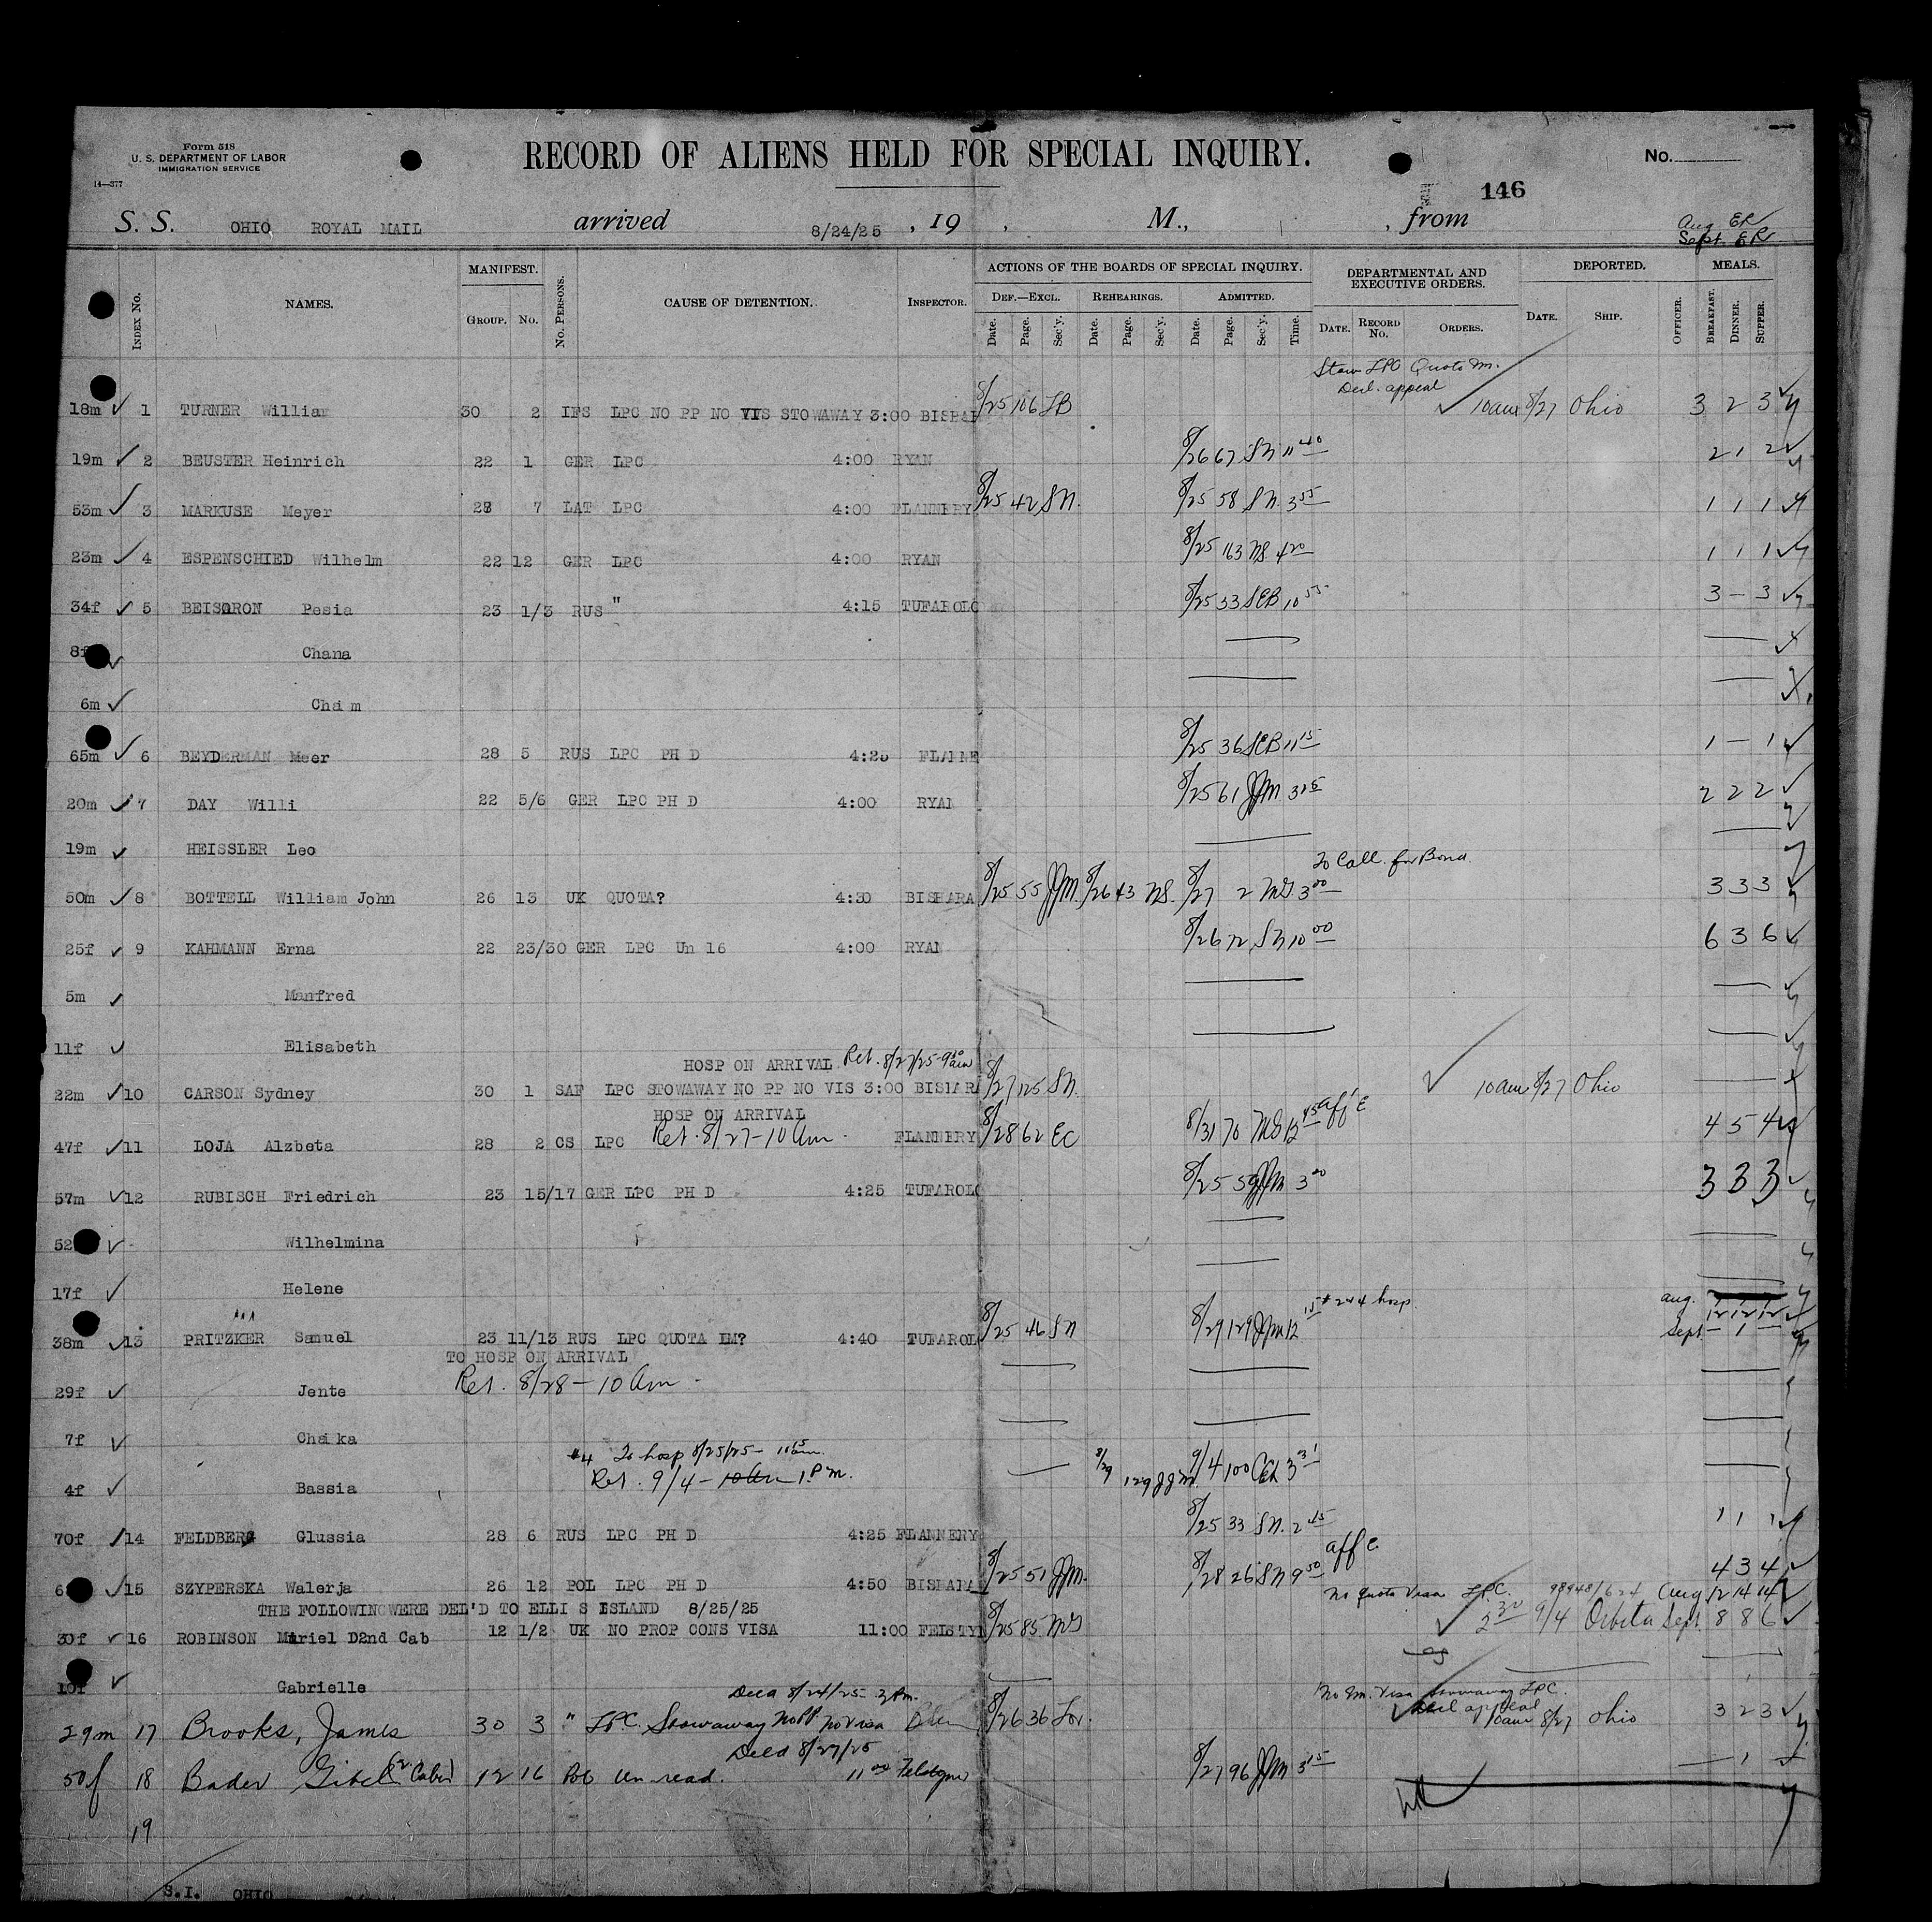 Form 518
U. S. DEPARTMENT OF LABOR
IMMIGRATION SERVICE
14—377
RECORD OF ALIENS HELD FOR SPECIAL INQUIRY.
No.
146
S. S. OHIO ROYAL MAIL arrived 8/24/25 , 19 , M., , from
Aug ER
Sept. ER
INDEX No. NAMES. MANIFEST. GROUP. No. No. PERSONS. CAUSE OF DETENTION. INSPECTOR. ACTIONS OF THE BOARDS OF SPECIAL INQUIRY. DEF.—EXCL. Date. Page. Sec'y. REHEARINGS. Date. Page. Sec'y. ADMITTED. Date. Page. Sec'y. Time. DEPARTMENTAL AND EXECUTIVE ORDERS. DATE. RECORD No. ORDERS. DEPORTED. DATE. SHIP. OFFICER. MEALS. BREAKFAST. DINNER. SUPPER.
Stow LPC Quota Im.
Decl. appeal
18m ✓ 1 TURNER William 30 2 IFS LPC NO PP NO VIS STOWAWAY 3:00 BISHAR 8/25 106 LB ✓ 10am 8/27 Ohio 3 2 3
19m ✓ 2 BEUSTER Heinrich 22 1 GER LPC 4:00 RYAN 8/26 67 11 40 2 1 2
53m ✓ 3 MARKUSE Meyer 28 7 LAT LPC 4:00 FLANNERY 8/25 42 SN. 8/25 58 SN. 3 55 1 1 1
23m ✓ 4 ESPENSCHIED Wilhelm 22 12 GER LPC 4:00 RYAN 8/25 163 NS 4 20 1 1 1
34f ✓ 5 BEISORON Pesia 23 1/3 RUS " 4:15 TUFAROLO 8/25 33 SEB 10 55 3 — 3
8f ✓ Chana
6m ✓ Chaim
65m ✓ 6 BEYDERMAN Meer 28 5 RUS LPC PH D 4:25 FLANNE 8/25 36 SEB 11 15 1 — 1
20m ✓ 7 DAY Willi 22 5/6 GER LPC PH D 4:00 RYAN 8/25 61 JJM 3 15 2 2 2
19m ✓ HEISSLER Leo
To Call for Bond
50m ✓ 8 BOTTELL William John 26 13 UK QUOTA? 4:30 BISHARA 8/25 55 JJM. 8/26 43 NS. 8/27 2 MG 3 00 3 3 3
25f ✓ 9 KAHMANN Erna 22 23/30 GER LPC Un 16 4:00 RYAN 8/26 72 10 00 6 3 6
5m ✓ Manfred
11f ✓ Elisabeth
HOSP ON ARRIVAL Ret. 8/27/25-9 30 am
22m ✓ 10 CARSON Sydney 30 1 SAF LPC STOWAWAY NO PP NO VIS 3:00 BISHARA 8/27 125 SN. ✓ 10am 8/27 Ohio
HOSP ON ARRIVAL
47f ✓ 11 LOJA Alzbeta 28 2 CS LPC Ret. 8/27-10 Am. FLANNERY 8/28 62 EC 8/31 70 MG 12 45 4 5 4
57m ✓ 12 RUBISCH Friedrich 23 15/17 GER LPC PH D 4:25 TUFAROLO 8/25 59 JJM 3 00 3 3 3
52 ✓ Wilhelmina
17f ✓ Helene
38m ✓ 13 PRITZKER Samuel 23 11/13 RUS LPC QUOTA IM? 4:40 TUFAROLO 8/25 46 SN 8/29 129 JJM 12 15 #2+4 hosp. aug. 12 12 12
Sept — 1 —
TO HOSP ON ARRIVAL
29f ✓ Jente Ret. 8/28 - 10 Am -
7f ✓ Chaika
#4 To hosp 8/25/25 - 11 15 am.
4f ✓ Bassia Ret. 9/4 - 10 Am 1 P.m. 8/29 129 JJM. 9/4 100 3 31
70f ✓ 14 FELDBERG Glussia 28 6 RUS LPC PH D 4:25 FLANNERY 8/25 33 SN. 2 45 1 1 1
aff c.
6 ✓ 15 SZYPERSKA Walerja 26 12 POL LPC PH D 4:50 BISHARA 8/25 51 JJM. 8/28 26 SN 9 50 4 3 4
THE FOLLOWING WERE DEL'D TO ELLI S ISLAND 8/25/25
No Quota Visa LPC. 98948/624 Aug 12 14 14
30f ✓ 16 ROBINSON Muriel D2nd Cab 12 1/2 UK NO PROP CONS VISA 11:00 FELSTYN 8/25 85 MG ✓ 2 30 9/4 Orbita Sept 8 8 6
10f ✓ Gabrielle
Decd 8/24/25 3 Pm.
No Im. Visa Stowaway LPC.
Decl appeal
29m 17 Brooks, James 30 3 " LPC. Stowaway No PP. No Visa 8/26 36 Lov. 10am 8/27 Ohio 3 2 3
Deld 8/27/25
50f 18 Bader Gitel (2 Cabin) 12 16 Pol Un read. 11 00 Felstyn 8/27 96 JJM 3 15 — 1 —
19
S.I. OHIO